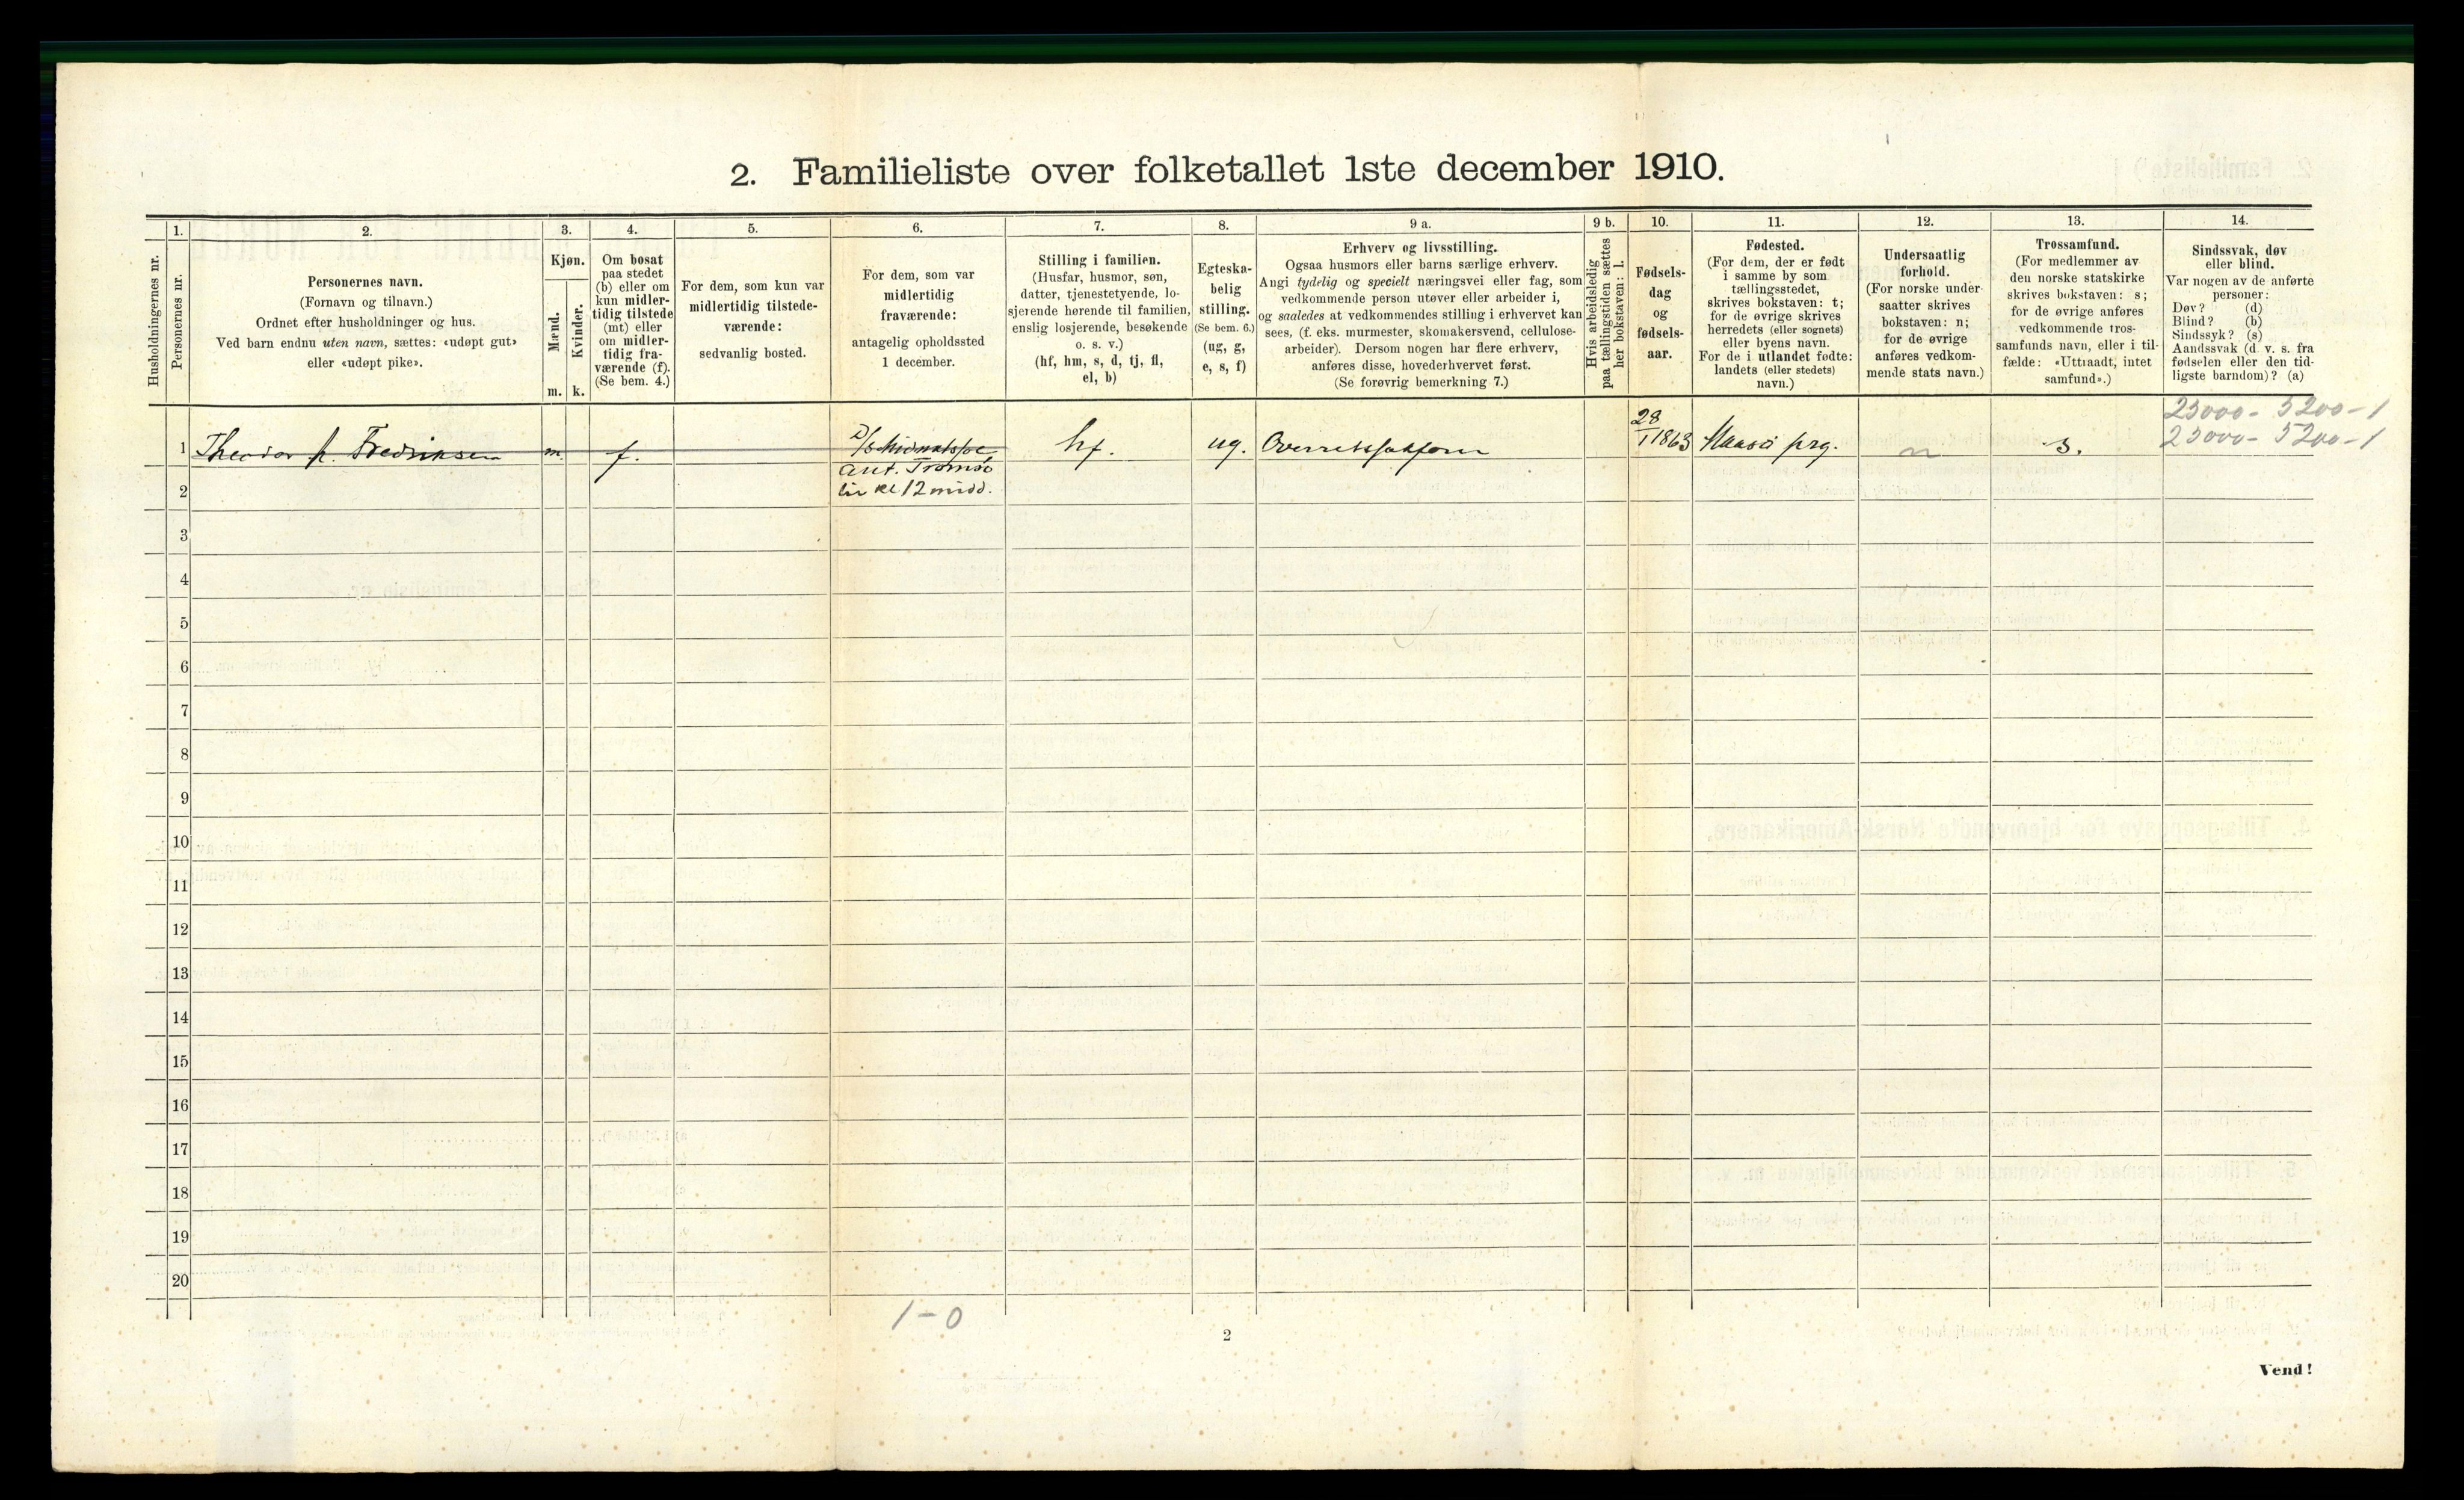 2. Familieliste over folketallet 1ste december 1910.
Husholdningernes nr.
1.
Personernes nr.
2.
Personernes navn.
(Fornavn og tilnavn.)
Ordnet efter husholdninger og hus.
Ved barn endnu uten navn, sættes: «udøpt gut»
eller «udøpt pike».
3.
Kjøn.
Mænd.
Kvinder.
m. k.
4.
Om bosat
paa stedet
(b) eller om
kun midler-
tidig tilstede
(mt) eller
om midler-
tidig fra-
værende (f).
(Se bem. 4.)
5.
For dem, som kun var
midlertidig tilstede-
værende:
sedvanlig bosted.
6.
For dem, som var
midlertidig
fraværende:
antagelig opholdssted
1 december.
7.
Stilling i familien.
(Husfar, husmor, søn,
datter, tjenestetyende, lo-
sjerende hørende til familien,
enslig losjerende, besøkende
o. s. v.)
(hf, hm, s, d, tj, fl,
el, b)
8.
Egteska-
belig
stilling.
(Se bem. 6.)
(ug, g,
e, s, f)
9 a.
Erhverv og livsstilling.
Ogsaa husmors eller barns særlige erhverv.
Angi tydelig og specielt næringsvei eller fag, som
vedkommende person utøver eller arbeider i,
og saaledes at vedkommendes stilling i erhvervet kan
sees, (f. eks. murmester, skomakersvend, cellulose-
arbeider). Dersom nogen har flere erhverv,
anføres disse, hovederhvervet først.
(Se forøvrig bemerkning 7.)
9 b.
Hvis arbeidsledig
paa tællingstiden sættes
her bokstaven: l.
10.
Fødsels-
dag
og
fødsels-
aar.
11.
Fødested.
(For dem, der er født
i samme by som
tællingsstedet,
skrives bokstaven: t;
for de øvrige skrives
herredets (eller sognets)
eller byens navn.
For de i utlandet fødte:
landets (eller stedets)
navn.)
12.
Undersaatlig
forhold.
(For norske under-
saatter skrives
bokstaven: n;
for de øvrige
anføres vedkom-
mende stats navn.)
13.
Trossamfund.
(For medlemmer av
den norske statskirke
skrives bokstaven: s;
for de øvrige anføres
vedkommende tros-
samfunds navn, eller i til-
fælde: «Uttraadt, intet
samfund».)
14.
Sindssvak, døv
eller blind.
Var nogen av de anførte
personer:
Døv? (d)
Blind? (b)
Sindssyk? (s)
Aandssvak (d. v. s. fra
fødselen eller den tid-
ligste barndom)? (a)
23000 - 5200 - 1
23000 - 5200 - 1
1 Theodor Fredriksen m. f. hf. ug. Overretssakfører 28/1 1863 Maasø prg. n s.
ant. Tromsø
2 kl 12 midd.
3
4
5
6
7
8
9
10
11
12
13
14
15
16
17
18
19
20
1 - 0
2
Vend!